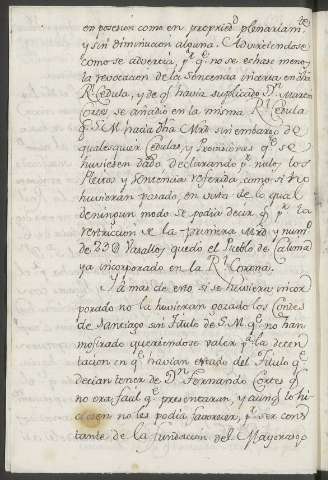 en posesion como en propried.d plenariam.te
y sin diminucion alguna. Advirtiendose
como se advertia, p.r q.e no se echase menos
la revocacion de la Sentencia inserta en dha
R.l Cedula, y de q.e havia suplicado D.n Martin
Cortes, se añadio en la misma R.l Cedula
q.e S.M. hacia dha Mrd sin embargo de
qualesquier Cedulas, y Provisiones q.e se
huviesen dado declarando p.r nulo, los
Pleitos y Sentencias referida, como si no
huvieran pasado, en vista de lo qual
de ningun modo se podia decir q.e p.r la
restriccion de la primera Mrd y num.o
de 23@ Vasallos quedo el Pueblo de
ya incorporado en la R.l Corona.
Ia mas de esto si se huviera incor
porado no la huvieran gozado los Condes
de Santiago sin Titulo de S.M. q.e no han
mostrado queriendose valer p.a la deten
tacion en q.e havian estado del Titulo q.e
decian tener de D.n Fernando Cortes q.e
no era facil q.e presentaran, y aunq.e lo hi
ciesen no les podia favorecer, p.r ser cons
tante de la fundacion del Mayorasgo